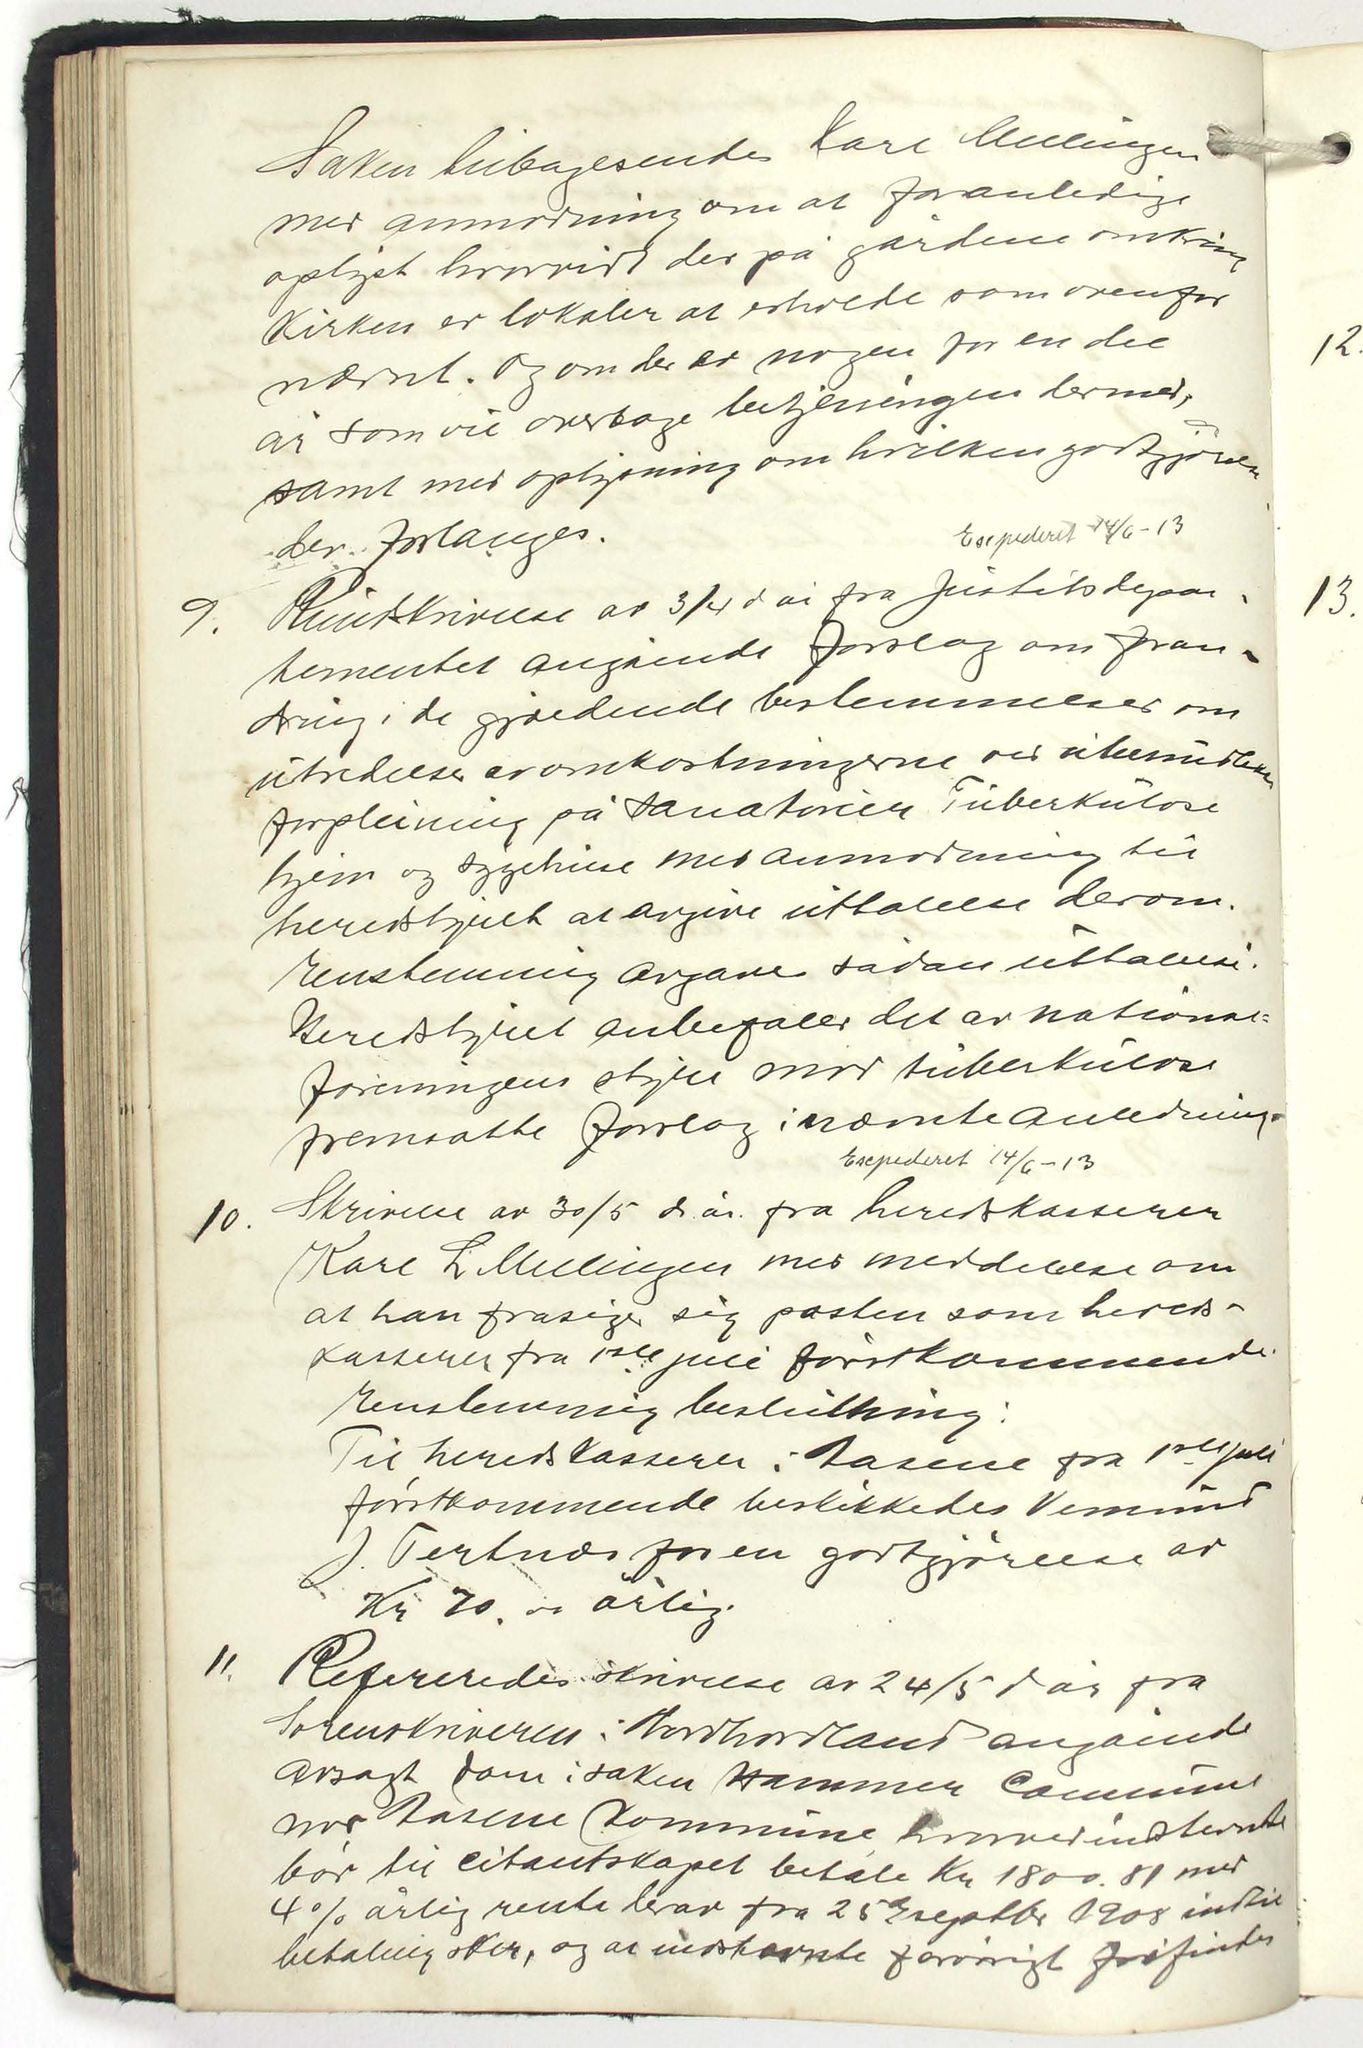 Saken tilbagesendes Karl Mellingen
med anmodning om at foranledige
oplyst hvorvidt der på gårdene omkring
Kirken er lokaler at erholde som ovenfor
nævnt. Og om der er nogen for en del
år som vil overtage betjeningen dermed,
samt med oplysning om hvilken godtgjörelse
der forlanges.
Expederet 14/6-13
9. Rundskrivelse av 3/4 d år fra Justitsdepar-
tementet angående forslag om foran-
dring i de gjældende bestemmelser om
utredelse av omkostningerne ved ubemidledes
forpleining på Sanatorier Tuberkulose
hjem og sygehuse med anmodning til
heredstyret at avgive uttalelse derom.
Enstemmig avgaves sådan uttalelse:
Heredstyret anbefaler det av national=
foreningens styre mod tuberkulose
fremsatte forslag i nævnte anledning.
Expederet 14/6-13
10. Skrivelse av 30/5 d. år. fra heredskasserer
Karl L. Mellingen med meddelelse om
at han frasiger sig posten som hereds-
kasserer fra 1ste juli förstkommende.
Enstemmig beslutning:
Til heredskasserer i Aasene fra 1ste juli
förstkommende beskikkedes Vemund
J. Tertnæs for en godtgjörelse av
Kr 70. oo årlig.
11. Refereredes skrivelse av 24/5 d år fra
Sorenskriveren i Nordhordland angående
avsagt dom i saken Hammer Commune
mod Aasene Kommune hvorved indstevnte
bör til Citantskapet betale Kr 1800. 81 med
4% årlig rente derav fra 25de septbr 1908 indtil
betaling sker, og at indstevnte forövrigt frifindes
12.
13.